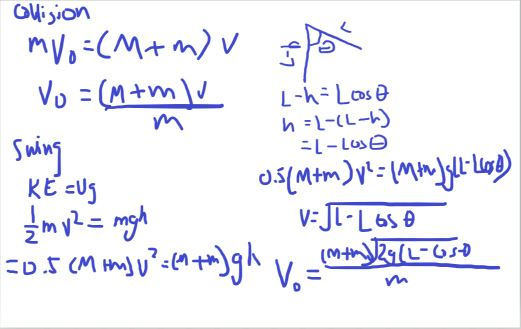 Collision
mV₀ = (M+m) v
V₀ = (M+m)v / m
Swing
KE = Ug
1/2 m v² = mgh
= 0.5 (M+m) v² = (M+m) gh
L
θ
L-h
L-h = L cos θ
h = L-(L-h)
= L - L cos θ
0.5(M+m) v² = (M+m)g(L-Lcosθ)
V = √L - L cos θ
V₀ = (M+m)√2g(L-cosθ / m